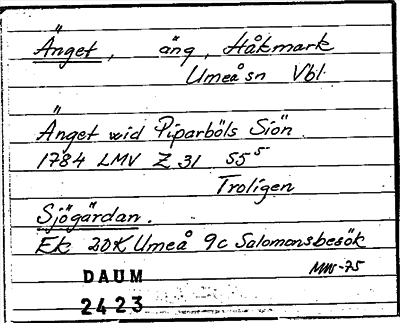 Änget, äng, Håkmark
Umeå sn Vbl.
"
Änget wid Piparböls Siön
1784 LMV Z 31 55⁵
Troligen
Sjögärdan.
Ek 20K Umeå 9c Salomonsbesök
DAUM MW-75
2423